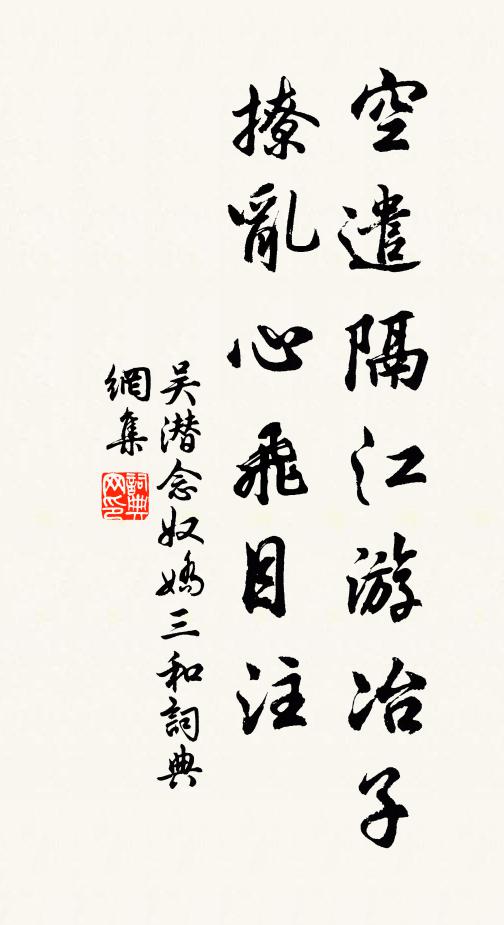 空遣隔江游冶子
撩亂心飛目注
吴潛念奴嬌三和詞典
網集
詞典
网印